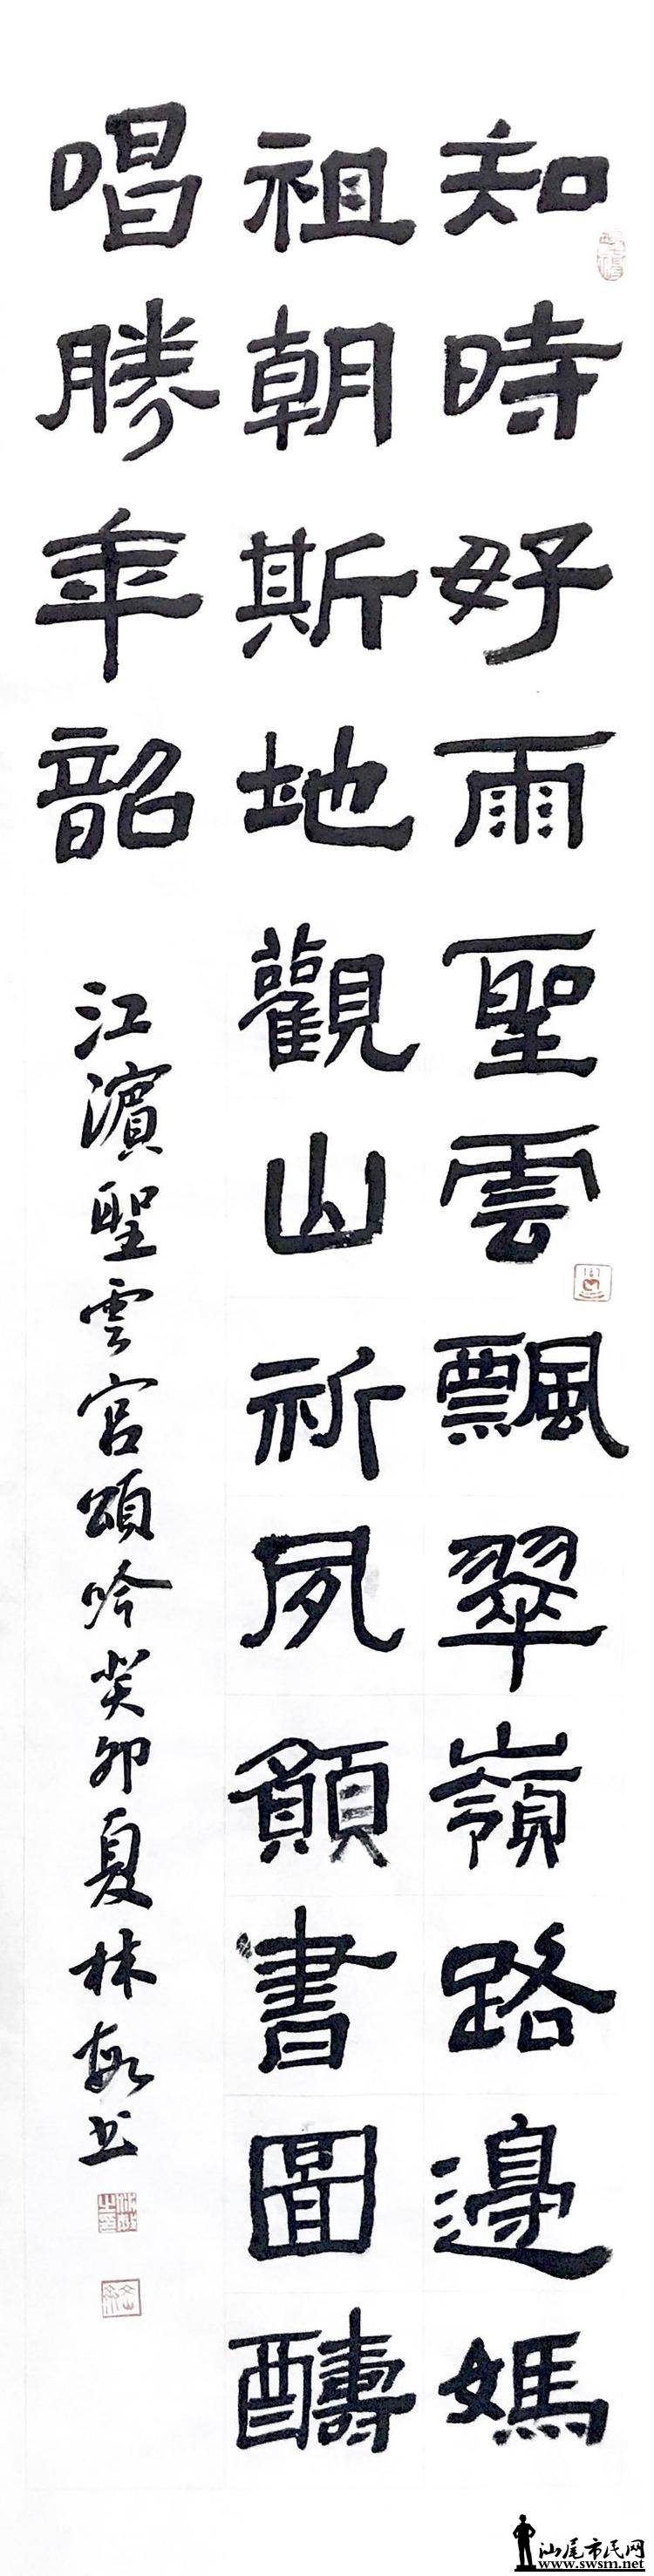 知時好雨聖雲飄翠嶺路邊媽
祖朝斯地觀山祈夙願書圖酬
唱勝年韶
江濱聖雲宮頌吟癸卯夏林敏书
汕尾市民网
www.swsm.net